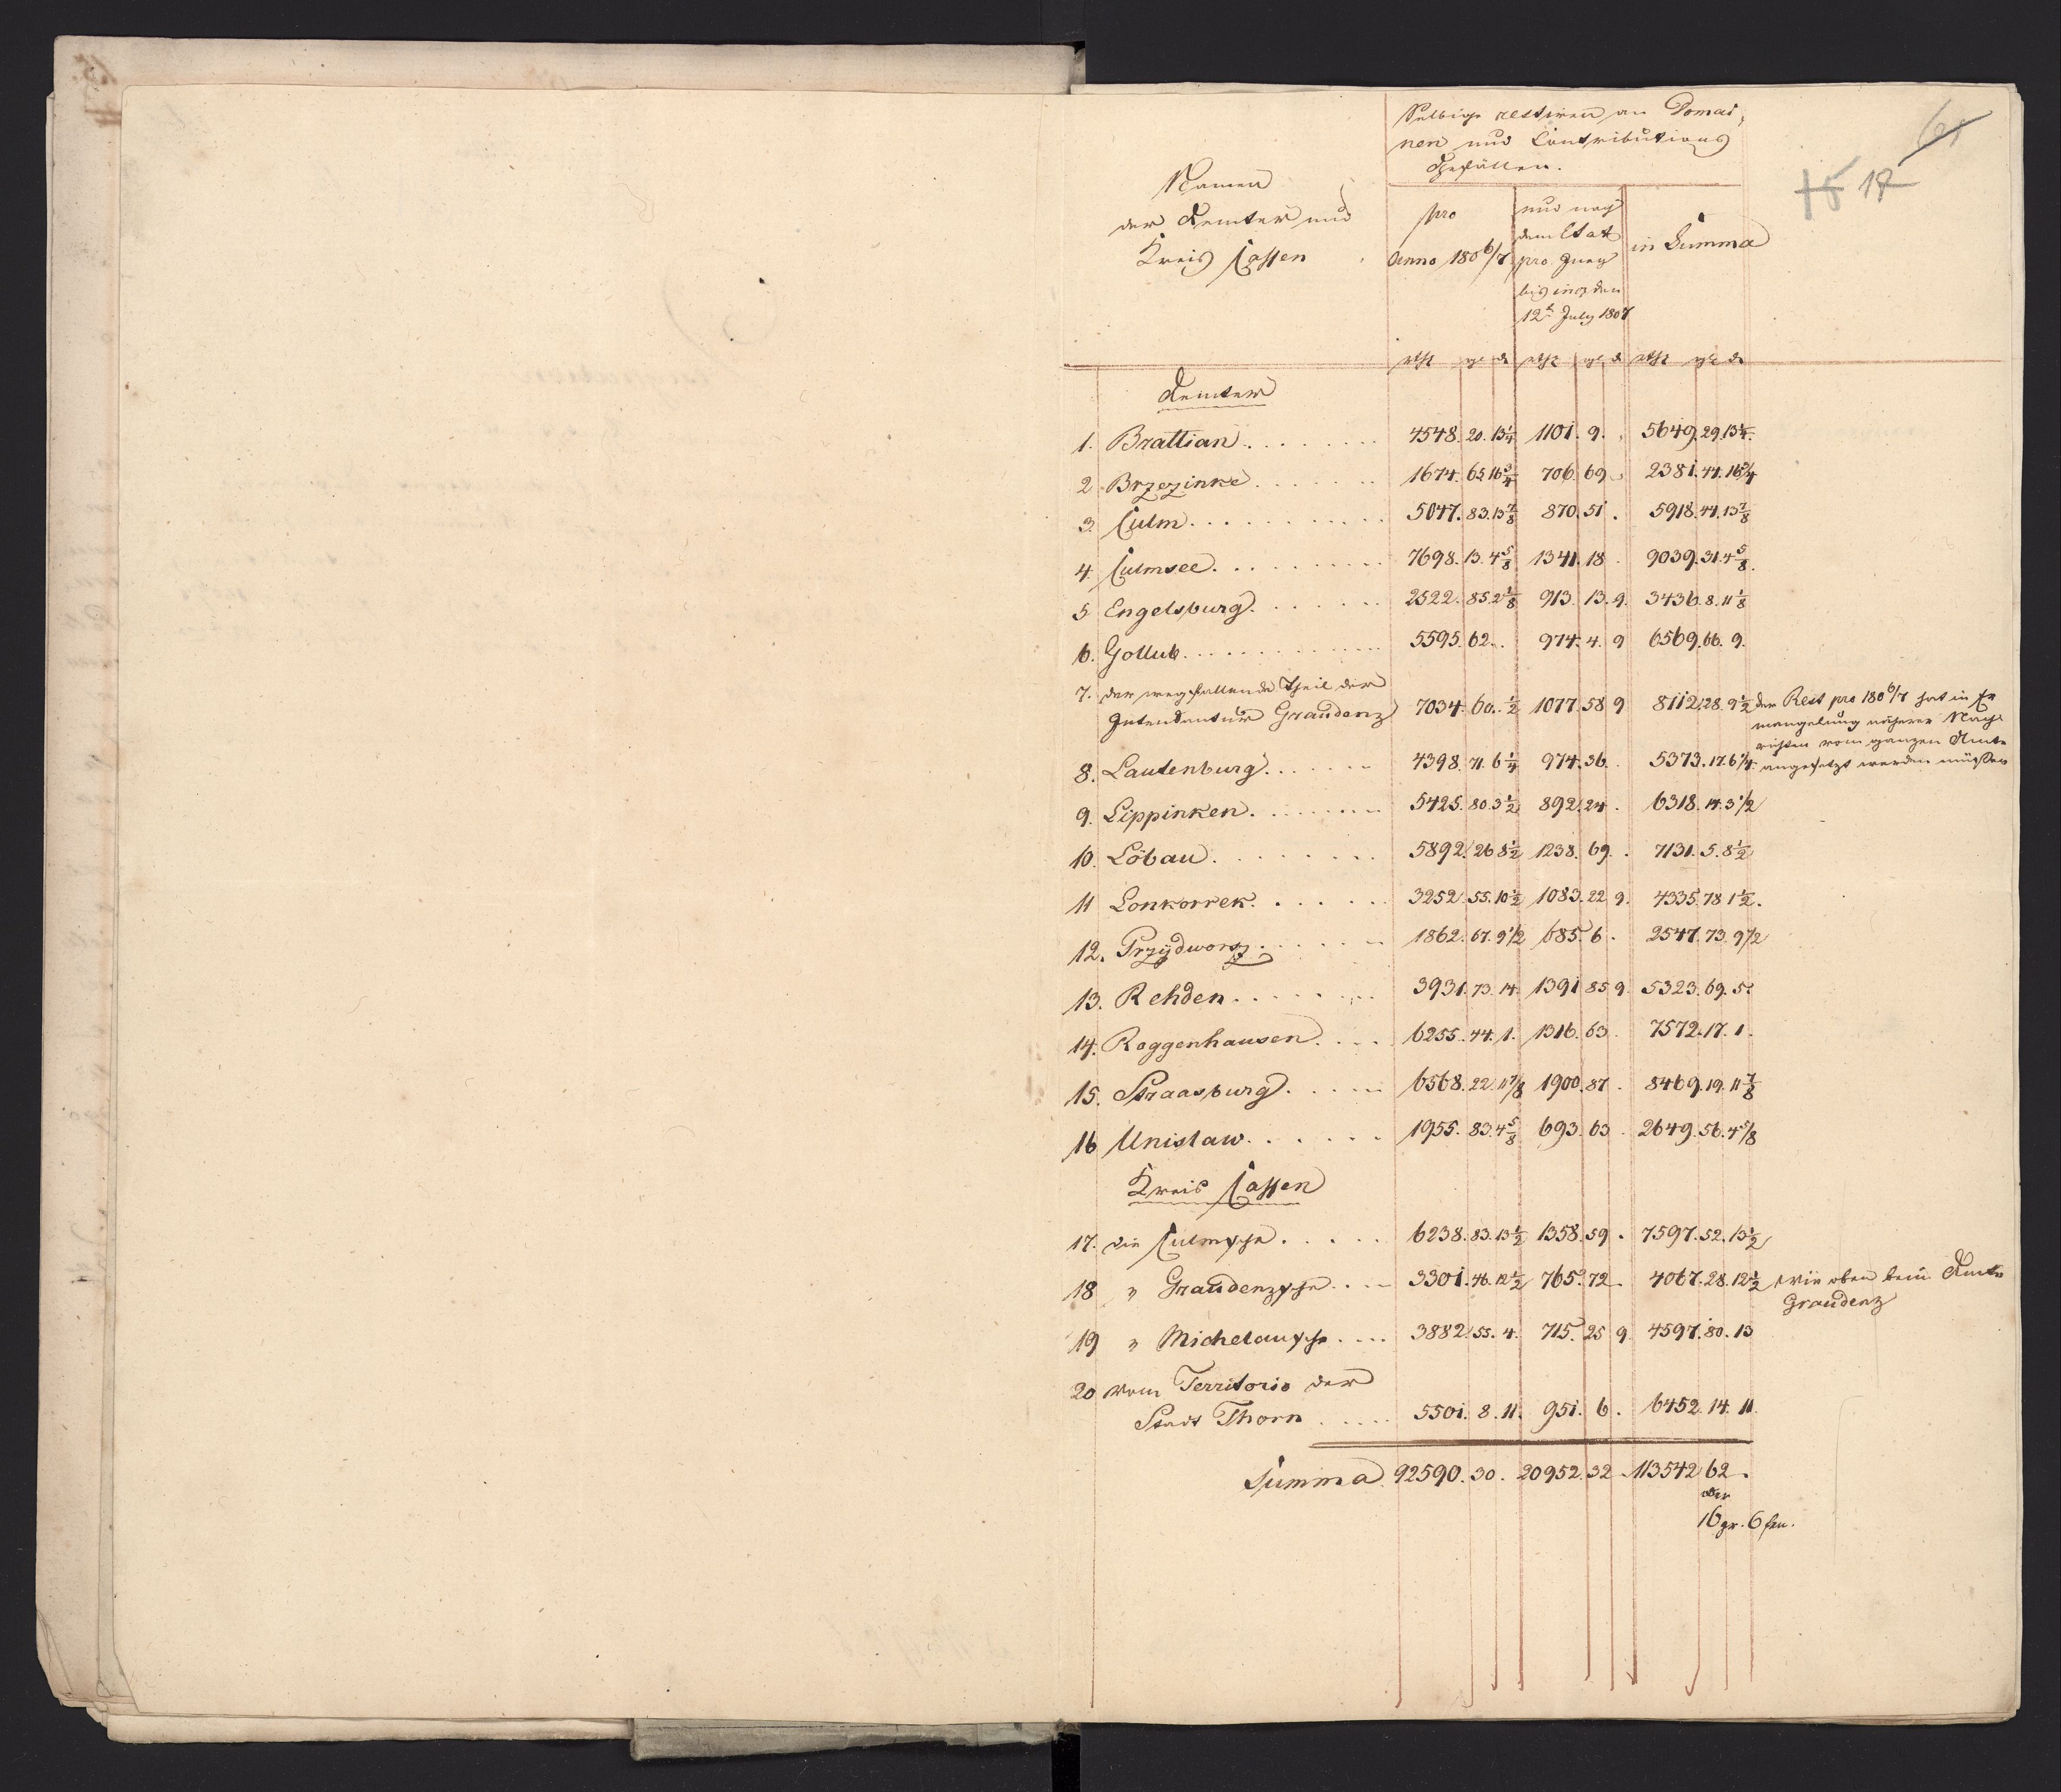 61
15 17
Namen
der Aemter und
Kreis Cassen
Selbige restiren an Domai-
nen und Contributions
Gefällen.
pro
anno 180 6/7
und nach
dem Etat
pro Juny
bis incl. den
12t July 1807
in Summa
rthl gr d rthl gr d rthl gr d
Aemter
1. Brattian 4548. 20. 13 1/4 1101. 9. 5649. 29. 13 1/4.
2 Brzezinke 1674. 65. 16 3/4 706. 69 2381. 44. 16 3/4
3 Culm 5047. 83. 13 7/8 870. 51. 5918. 44. 13 7/8
4. Culmsee 7698. 13. 4 5/8 1341. 18. 9039. 31. 4 5/8.
5 Engelsburg 2522. 85. 2 1/8 913. 13. 9. 3436. 8. 11 1/8
6. Gollub 5595. 62. 974. 4. 9 6569. 66. 9.
7. der wegfallende Theil der
Intendantur Graudenz 7034. 60. 1/2 1077. 58 9 8112. 28. 9 1/2 der Rest pro 180 6/7 hat in Er
mangelung näherer Nach-
richten vom ganzen Amte
angesetzt werden müssen
8. Lautenburg 4398. 71. 6 1/4 974. 36. 5373. 17. 6 1/4.
9. Lippinken 5425. 80. 3 1/2 892. 24. 6318. 14. 3 1/2
10. Löbau 5892. 26 8 1/2 1238. 69. 7131. 5. 8 1/2
11 Lonkorrek 3252. 55. 10 1/2 1083. 22 9. 4335. 78 1 1/2.
12. Przydworz 1862. 67. 9 1/2 685. 6. 2547. 73. 9 1/2
13. Rehden 3931. 73. 14. 1391 85 9 5323. 69. 5.
14. Roggenhausen 6255. 44. 1. 1316. 63. 7572. 17. 1.
15. Straasburg 6568. 22. 11 7/8 1900. 87. 8469. 19. 11 7/8
16 Unislaw 1955. 83. 4 5/8 693. 63. 2649. 56. 4 5/8
Kreis Cassen
17. die Culmsche 6238. 83. 13 1/2 1358. 59. 7597. 52. 13 1/2
18 " Graudenzsche 3301. 46. 12 1/2 765. 72. 4067. 28. 12 1/2 wie oben beim Amte
Graudenz
19 " Michelausche 3882. 55. 4. 715. 25 9 4597. 80. 13
20 vom Territorio der
Stadt Thorn 5501. 8. 11. 951. 6. 6452. 14. 11.
Summa 92590. 30. 20952. 32. 113542 62.
oder
16 gr. 6 fen.